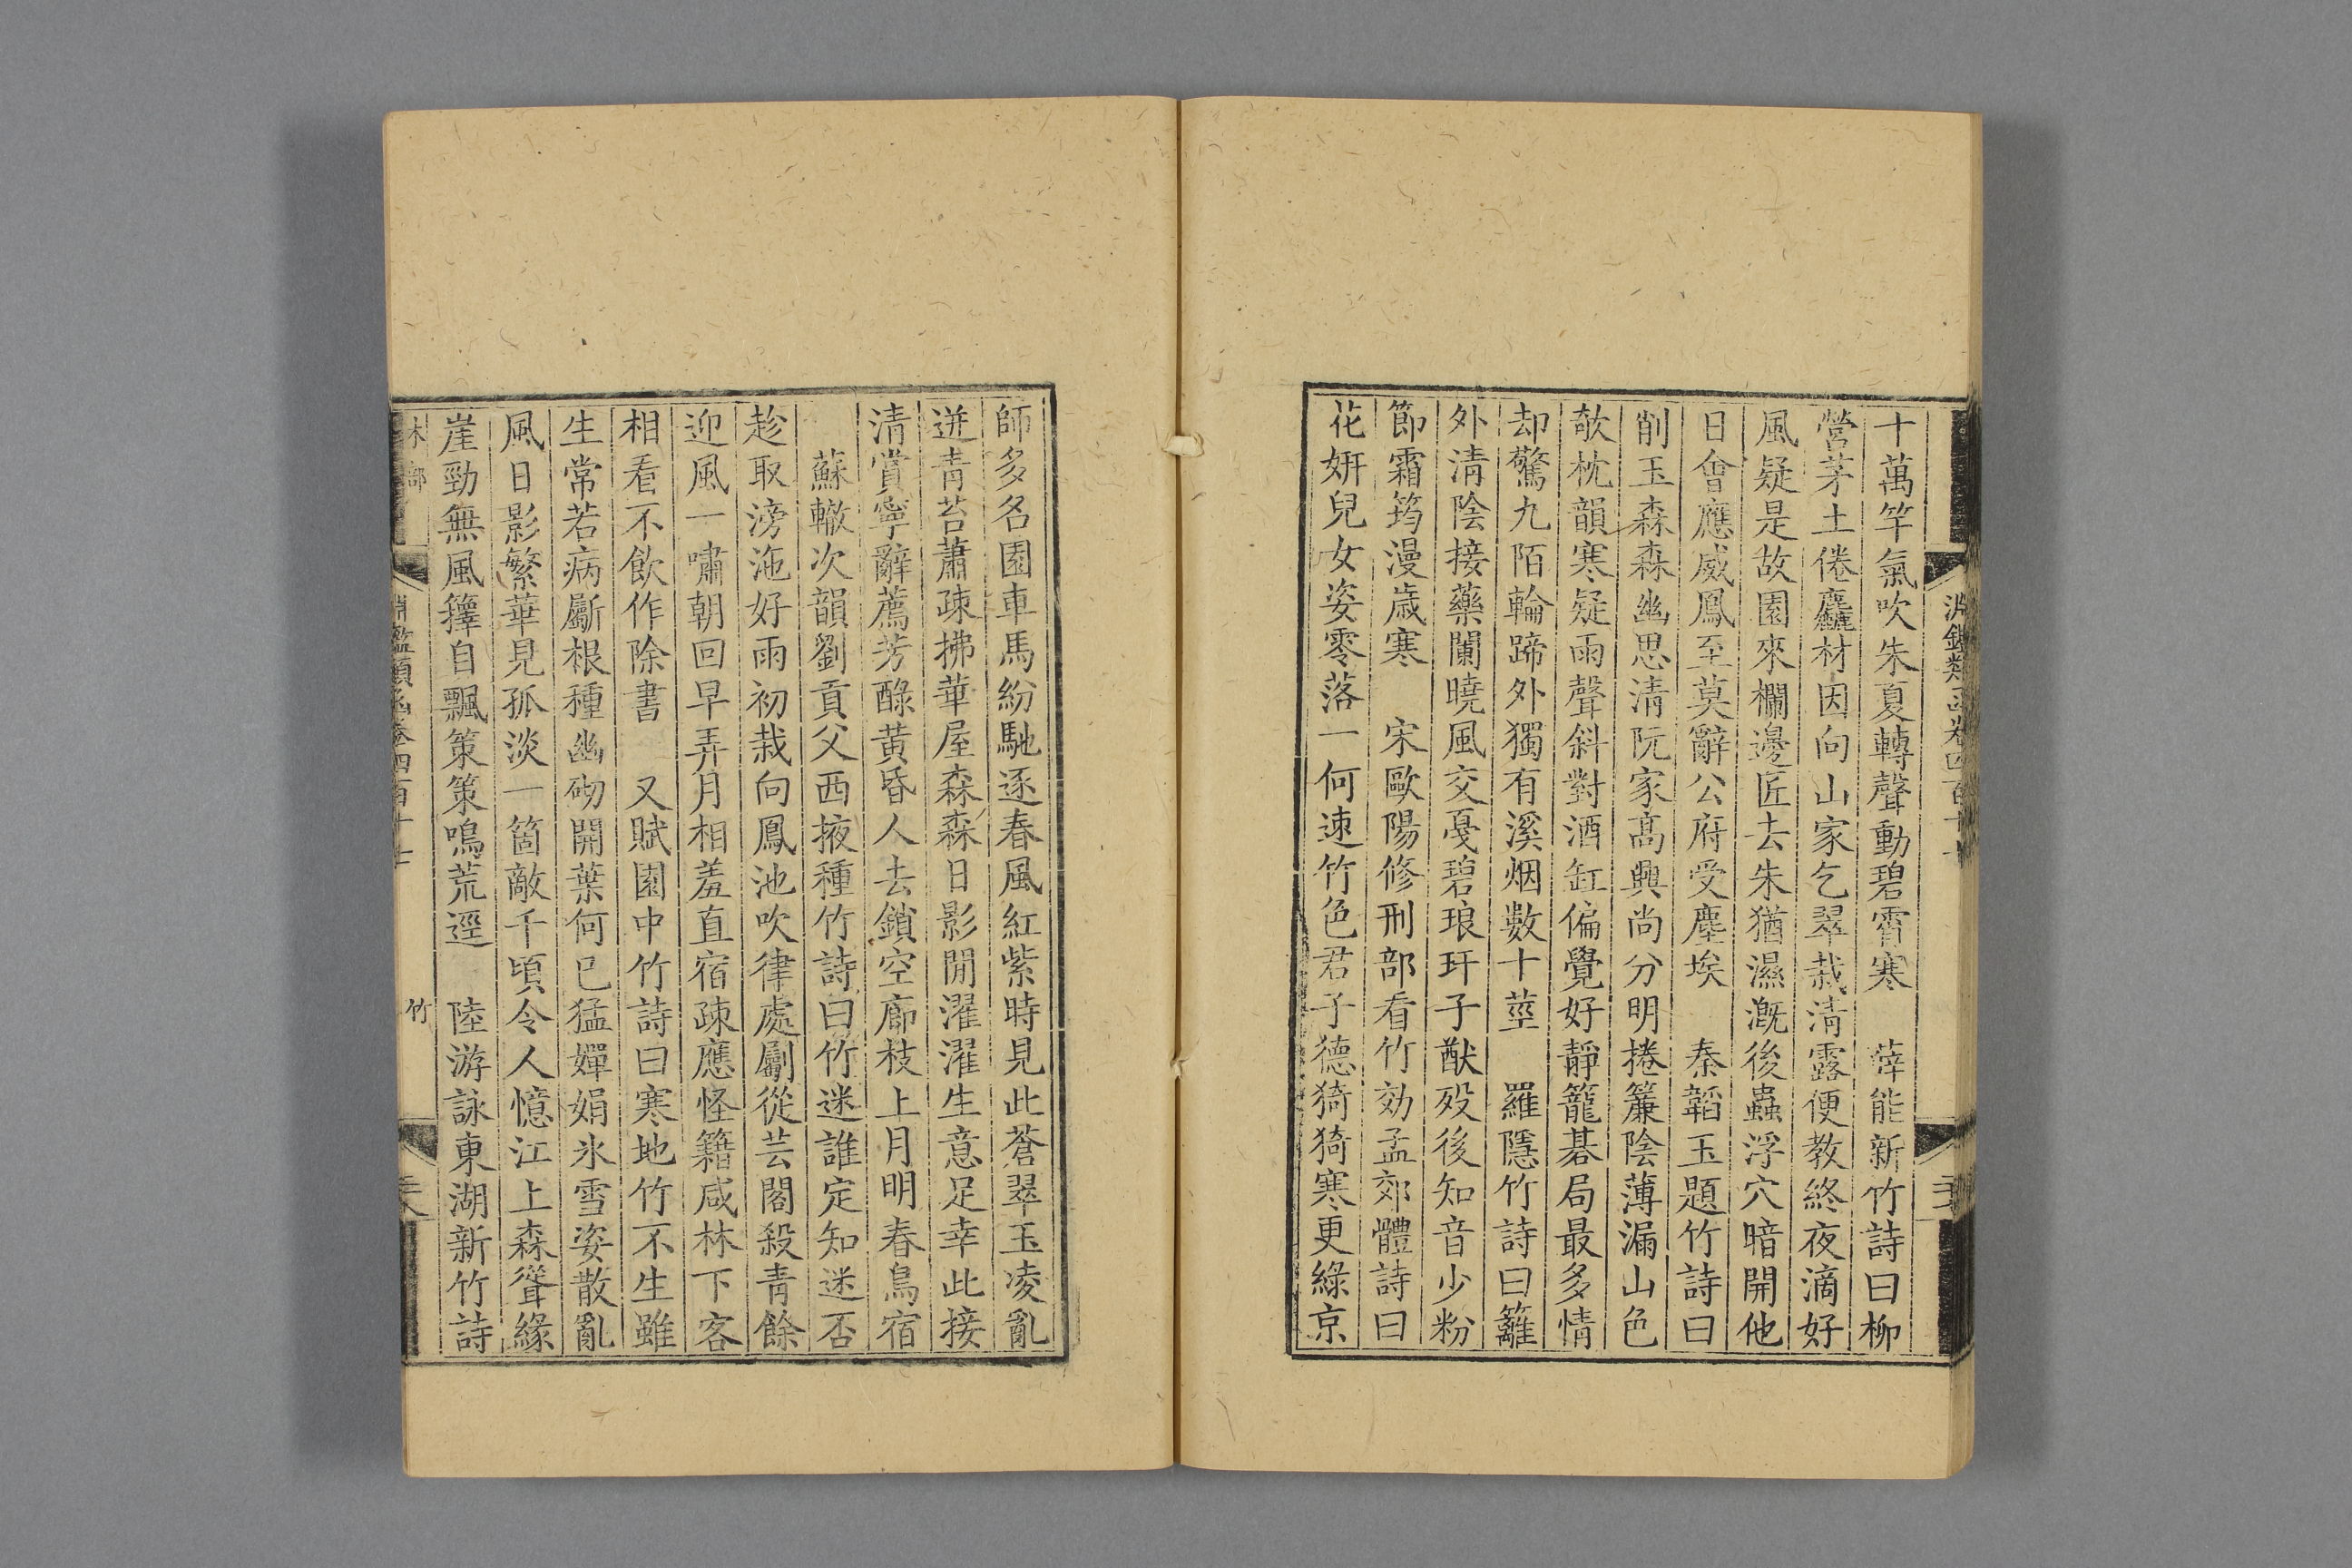 十萬竿氣吹朱夏轉聲動碧霄寒　薛能新竹詩曰柳
營茅土倦麤材因向山家乞翠栽清露便教終夜滴好
風疑是故園來欄邊匠去朱猶濕溉後蟲浮穴暗開他
日會應威鳳至莫辭公府受塵埃　秦韜玉題竹詩曰
削玉森森幽思清阮家高興尚分明捲簾陰薄漏山色
欹枕韻寒疑雨聲斜對酒缸偏覺好靜籠碁局最多情
却驚九陌輪蹄外獨有溪烟數十莖　羅隱竹詩曰籬
外清陰接藥闌曉風交戛碧琅玕子猷歿後知音少粉
節霜筠漫歲寒　宋歐陽修刑部看竹効孟郊體詩曰
花妍兒女姿零落一何速竹色君子德猗猗寒更綠京
師多名園車馬紛馳逐春風紅紫時見此蒼翠玉凌亂
迸青苔蕭疎拂華屋森森日影閒濯濯生意足幸此接
清賞寧辭薦芳醁黃昏人去鎖空廊枝上月明春鳥宿
蘇轍次韻劉貢父西掖種竹詩曰竹迷誰定知迷否
趁取滂沲好雨初栽向鳳池吹律處劚從芸閣殺青餘
迎風一嘯朝回早弄月相羞直宿疎應怪籍咸林下客
相看不飲作除書　又賦園中竹詩曰寒地竹不生雖
生常若病斸根種幽砌開葉何已猛嬋娟氷雪姿散亂
風日影繁華見孤淡一箇敵千頃令人憶江上森聳緣
崖勁無風籜自飄策策鳴荒逕　陸游詠東湖新竹詩
林部
淵鑑類函卷四百十七
竹